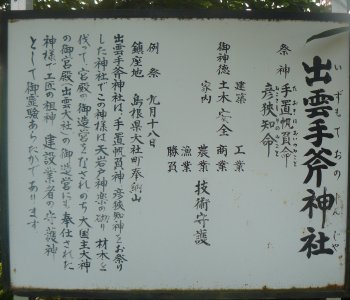 出雲手斧神社
いずもておのじんじゃ
祭神 手置帆負命
彦狭知命
御神徳
建築 工業
土木 安全 商業 技術守護
家内 農業
漁業
勝負
例祭 九月十八日
鎮座地 島根県大社町奉納山
出雲手斧神社は、手置帆負神、彦狭知神をお祭り
した神社でこの神様は天岩戸神楽の砌り材木を
伐って、宮殿の御造営をなされのち大国主大神
の御宮殿(出雲大社)の御造営にも奉仕された
神様で工匠の祖神 建設業者の守護神
として御霊験あらたかであります